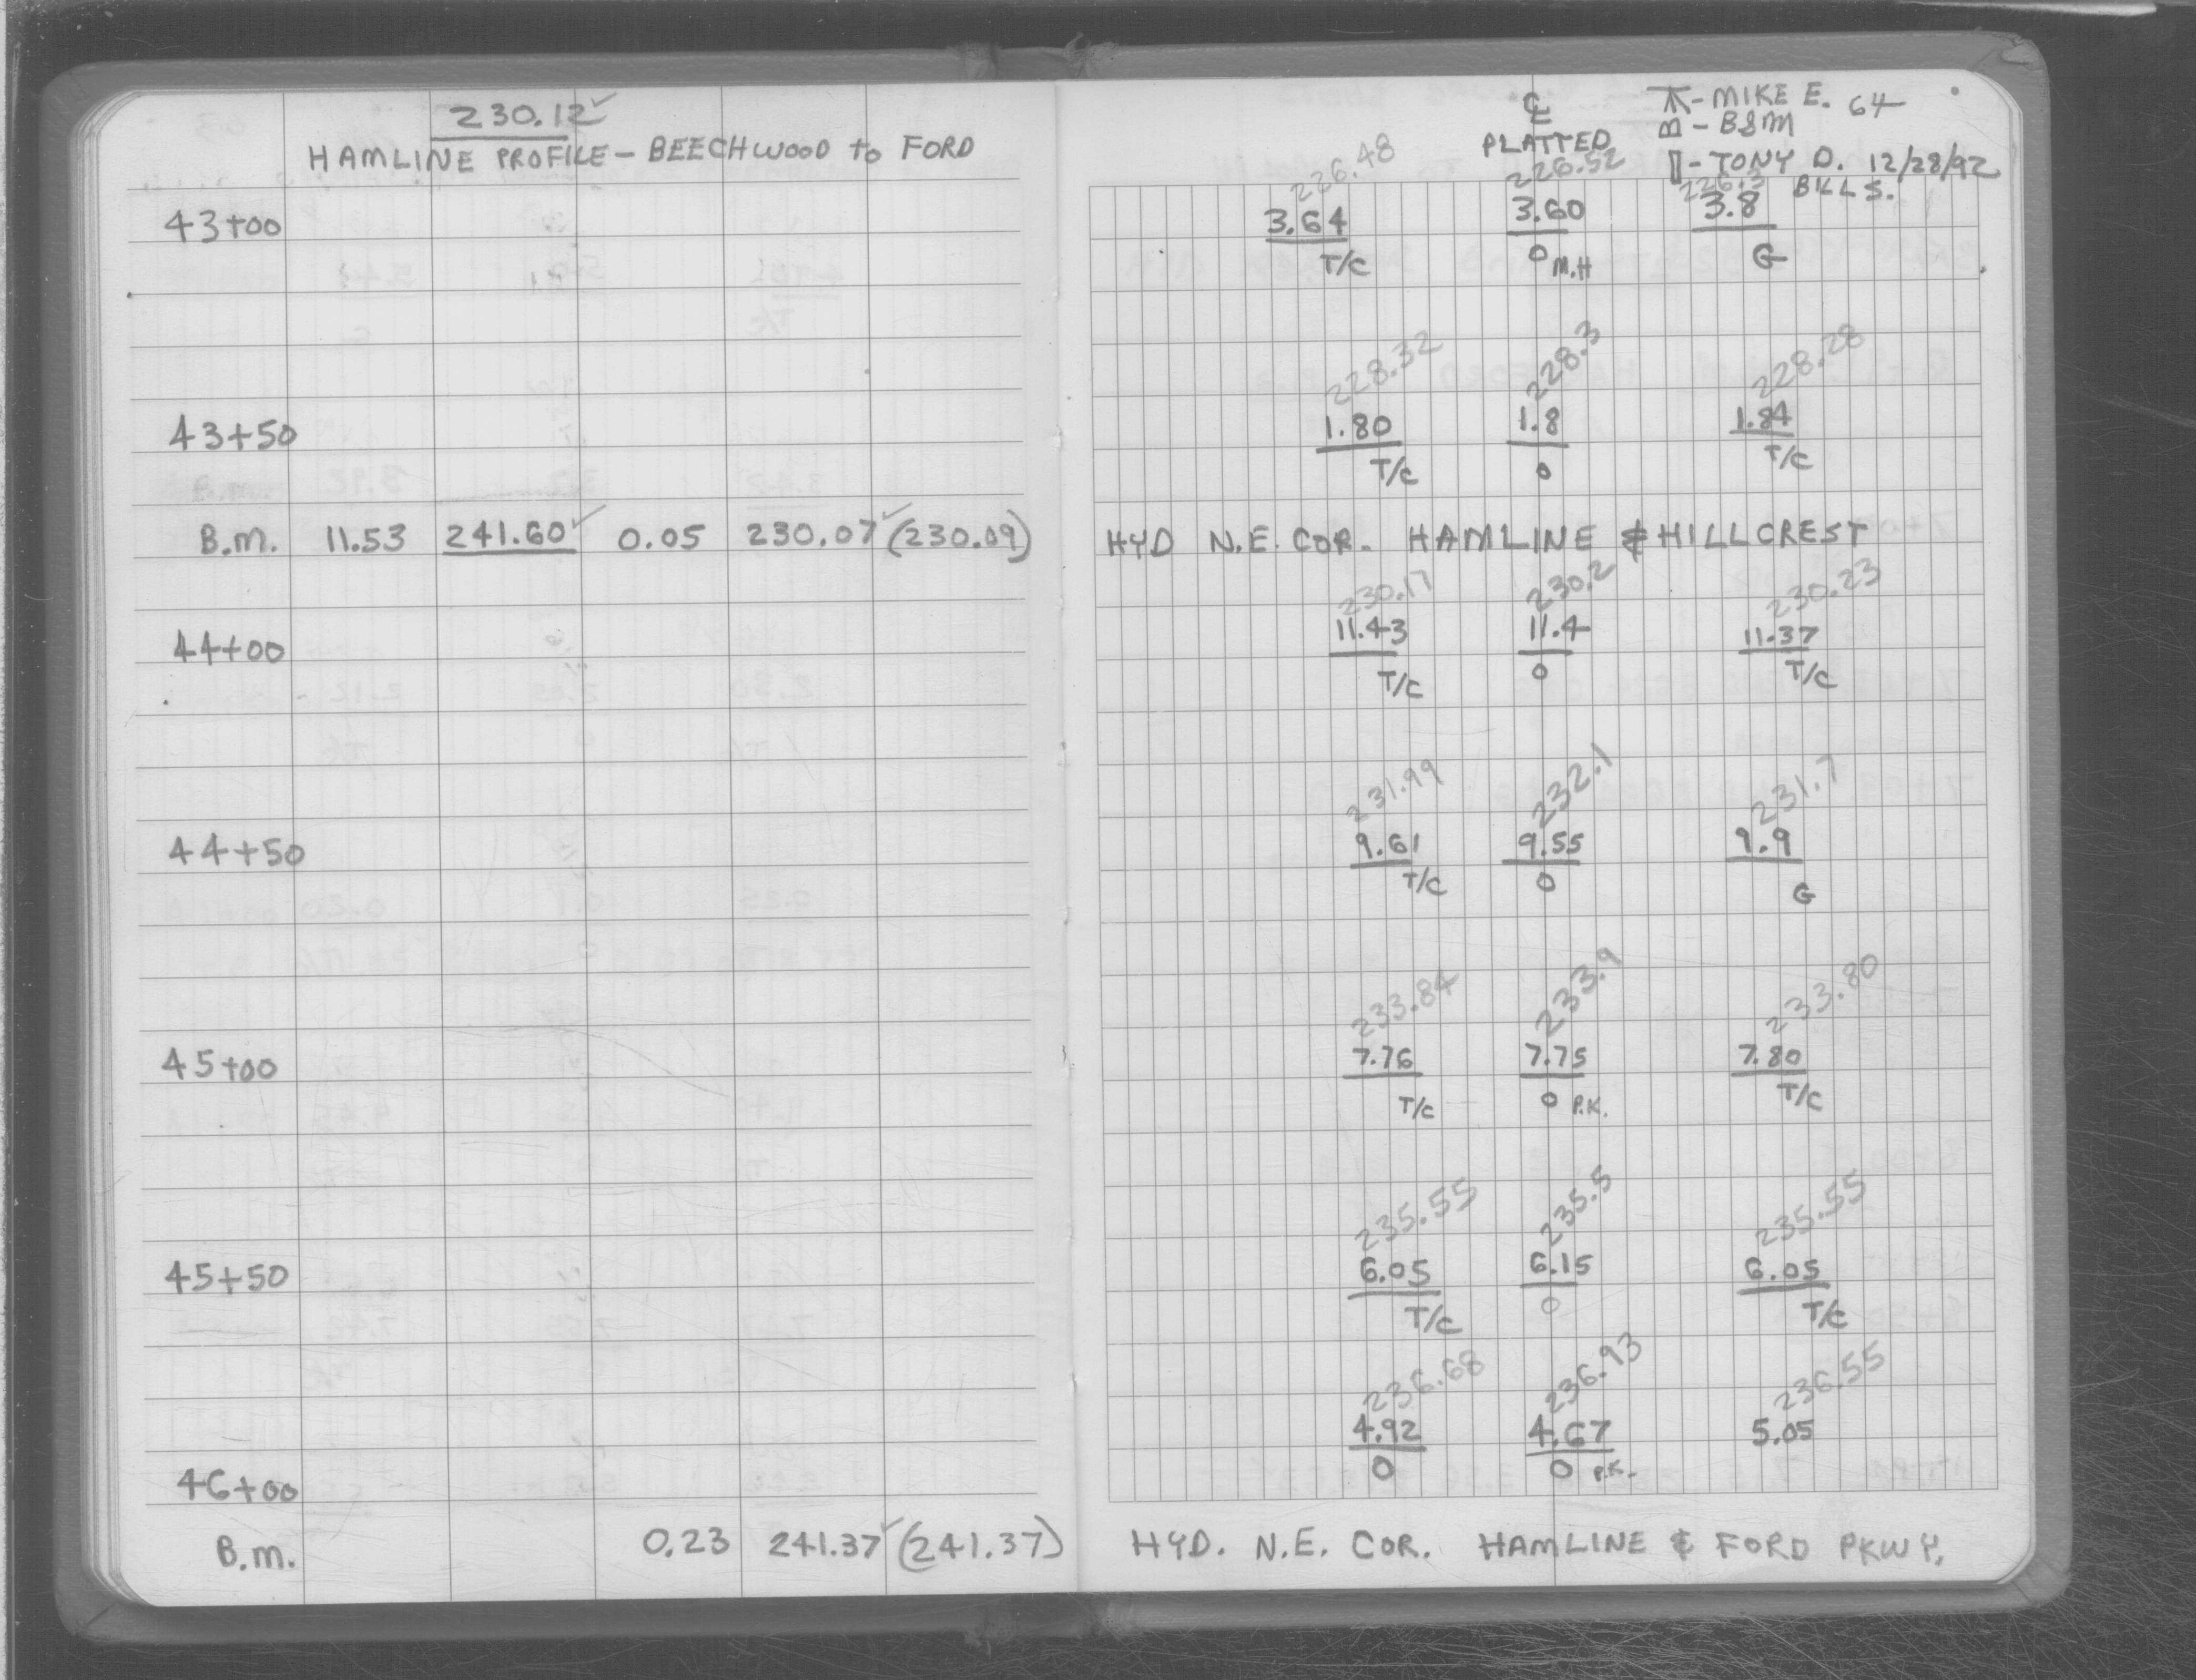 230.12✓
HAMLINE PROFILE - BEECHWOOD to FORD
43+00
43+50
B.M. 11.53 241.60✓ 0.05 230.07✓ (230.09)
44+00
44+50
45+00
45+50
46+00
B.M. 0.23 241.37✓ (241.37)
℄ PLATTED
⊼ - MIKE E. 64
- B&M
- TONY D. 12/28/92
BILL S.
226.48 226.52 226.3
3.64 3.60 3.8
T/C 0 M.H G
228.32 228.3 228.28
1.80 1.8 1.84
T/C 0 T/C
HYD N.E. COR. HAMLINE & HILLCREST
230.17 230.2 230.23
11.43 11.4 11.37
T/C 0 T/C
231.99 232.1 231.7
9.61 9.55 9.9
T/C 0 G
233.84 233.9 233.80
7.76 7.75 7.80
T/C 0 P.K. T/C
235.55 235.5 235.55
6.05 6.15 6.05
T/C 0 T/C
236.68 236.93 236.55
4.92 4.67 5.05
0 0 P.K.
HYD. N.E. COR. HAMLINE & FORD PKWY.